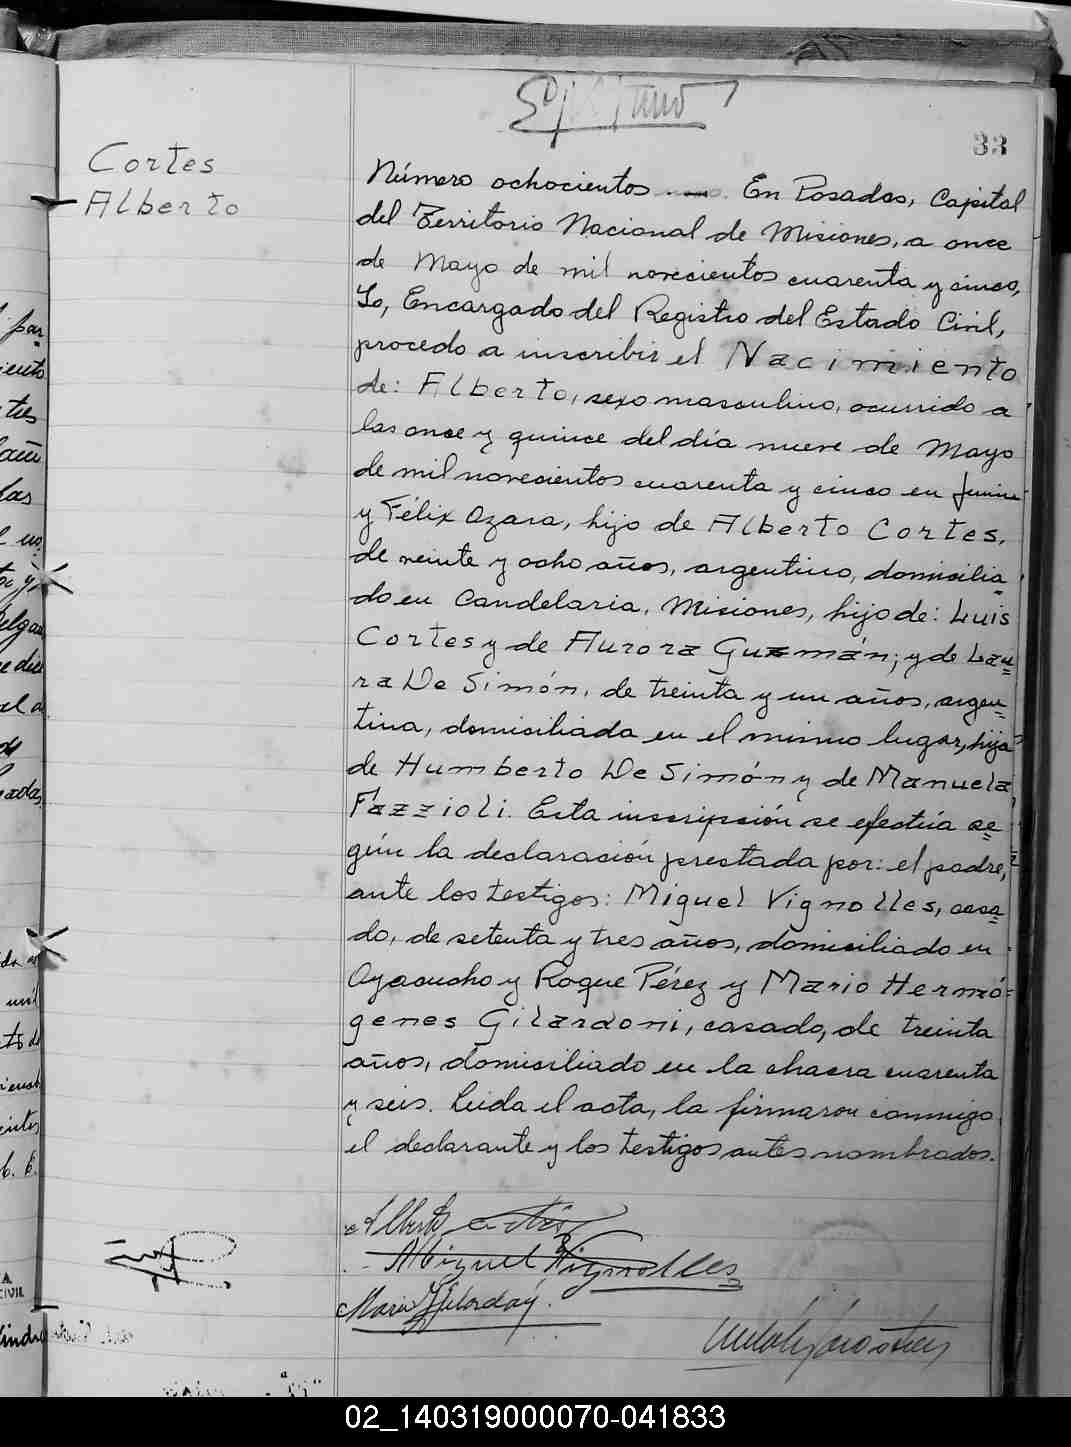 33
Cortes
Alberto
Número ochocientos. — En Posadas, Capital
del Territorio Nacional de Misiones, a once
de Mayo de mil novecientos cuarenta y cinco,
Yo, Encargado del Registro del Estado Civil,
procedo a inscribir el Nacimiento
de: Alberto, sexo masculino, ocurrido a
las once y quince del día nueve de Mayo
de mil novecientos cuarenta y cinco en Junin
y Félix Azara, hijo de Alberto Cortes,
de veinte y ocho años, argentino, domicilia
do en Candelaria, Misiones, hijo de: Luis
Cortes y de Aurora Guzmán; y de Lau
ra De Simón, de treinta y un años, argen
tina, domiciliada en el mismo lugar, hija
de Humberto De Simón y de Manuela
Fazzioli. Esta inscripción se efectúa se
gún la declaración prestada por: el padre,
ante los testigos: Miguel Vignolles, casa
do, de setenta y tres años, domiciliado en
Ayacucho y Roque Pérez y Mario Hermó
genes Gilardoni, casado, de treinta
años, domiciliado en la chacra cuarenta
y seis. Leida el acta, la firmaron conmigo
el declarante y los testigos antes nombrados.
Alberto Cortés
Miguel Vignolles
02_140319000070-041833